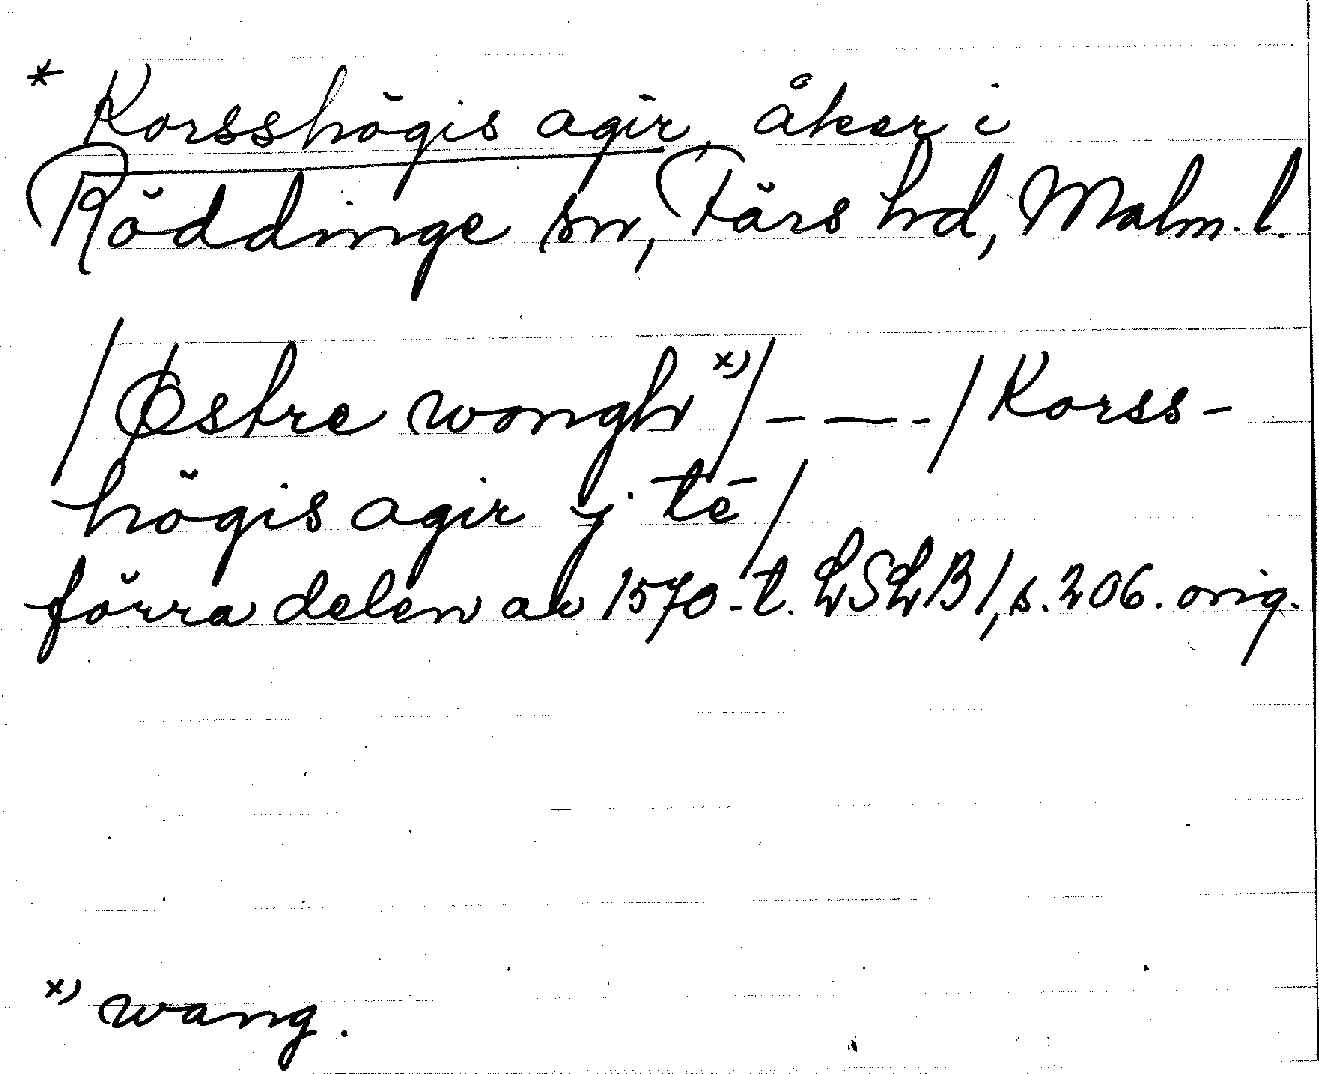 * Korsshögis agir, åker i
Röddinge sn, Färs hd, Malm. l.
/Østre wongh x)/ – — - / Korss-
högis agir j tē/
förra delen av 1570-t. LSLB 1, s. 206. orig.
x) wang.